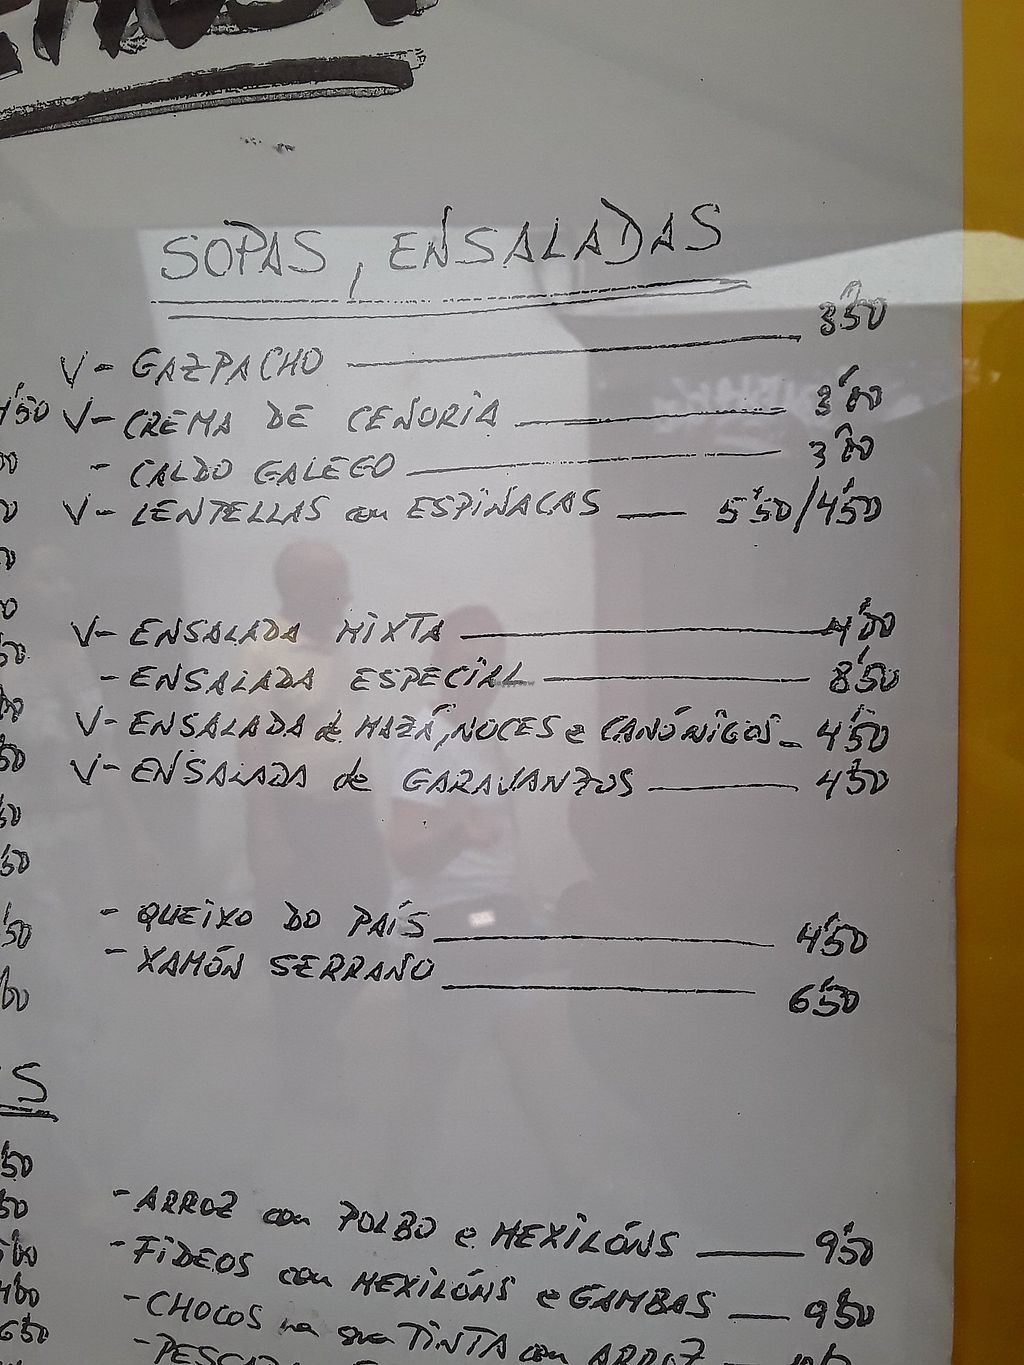 SOPAS, ENSALADAS
V- GAZPACHO 3'50
V- CREMA DE CENORIA 3'00
- CALDO GALEGO 3'00
V- LENTELLAS con ESPINACAS 5'50/4'50
V- ENSALADA MIXTA 4'00
- ENSALADA ESPECIAL 8'50
V- ENSALADA de MAZÁ, NOCES e CANÓNIGOS - 4'50
V- ENSALADA de GARAVANZOS 4'50
- QUEIXO DO PAÍS 4'50
- XAMÓN SERRANO 6'50
- ARROZ con POLBO e MEXILÓNS 9'50
- FIDEOS con MEXILÓNS e GAMBAS 9'50
- CHOCOS na sua TINTA con ARROZ